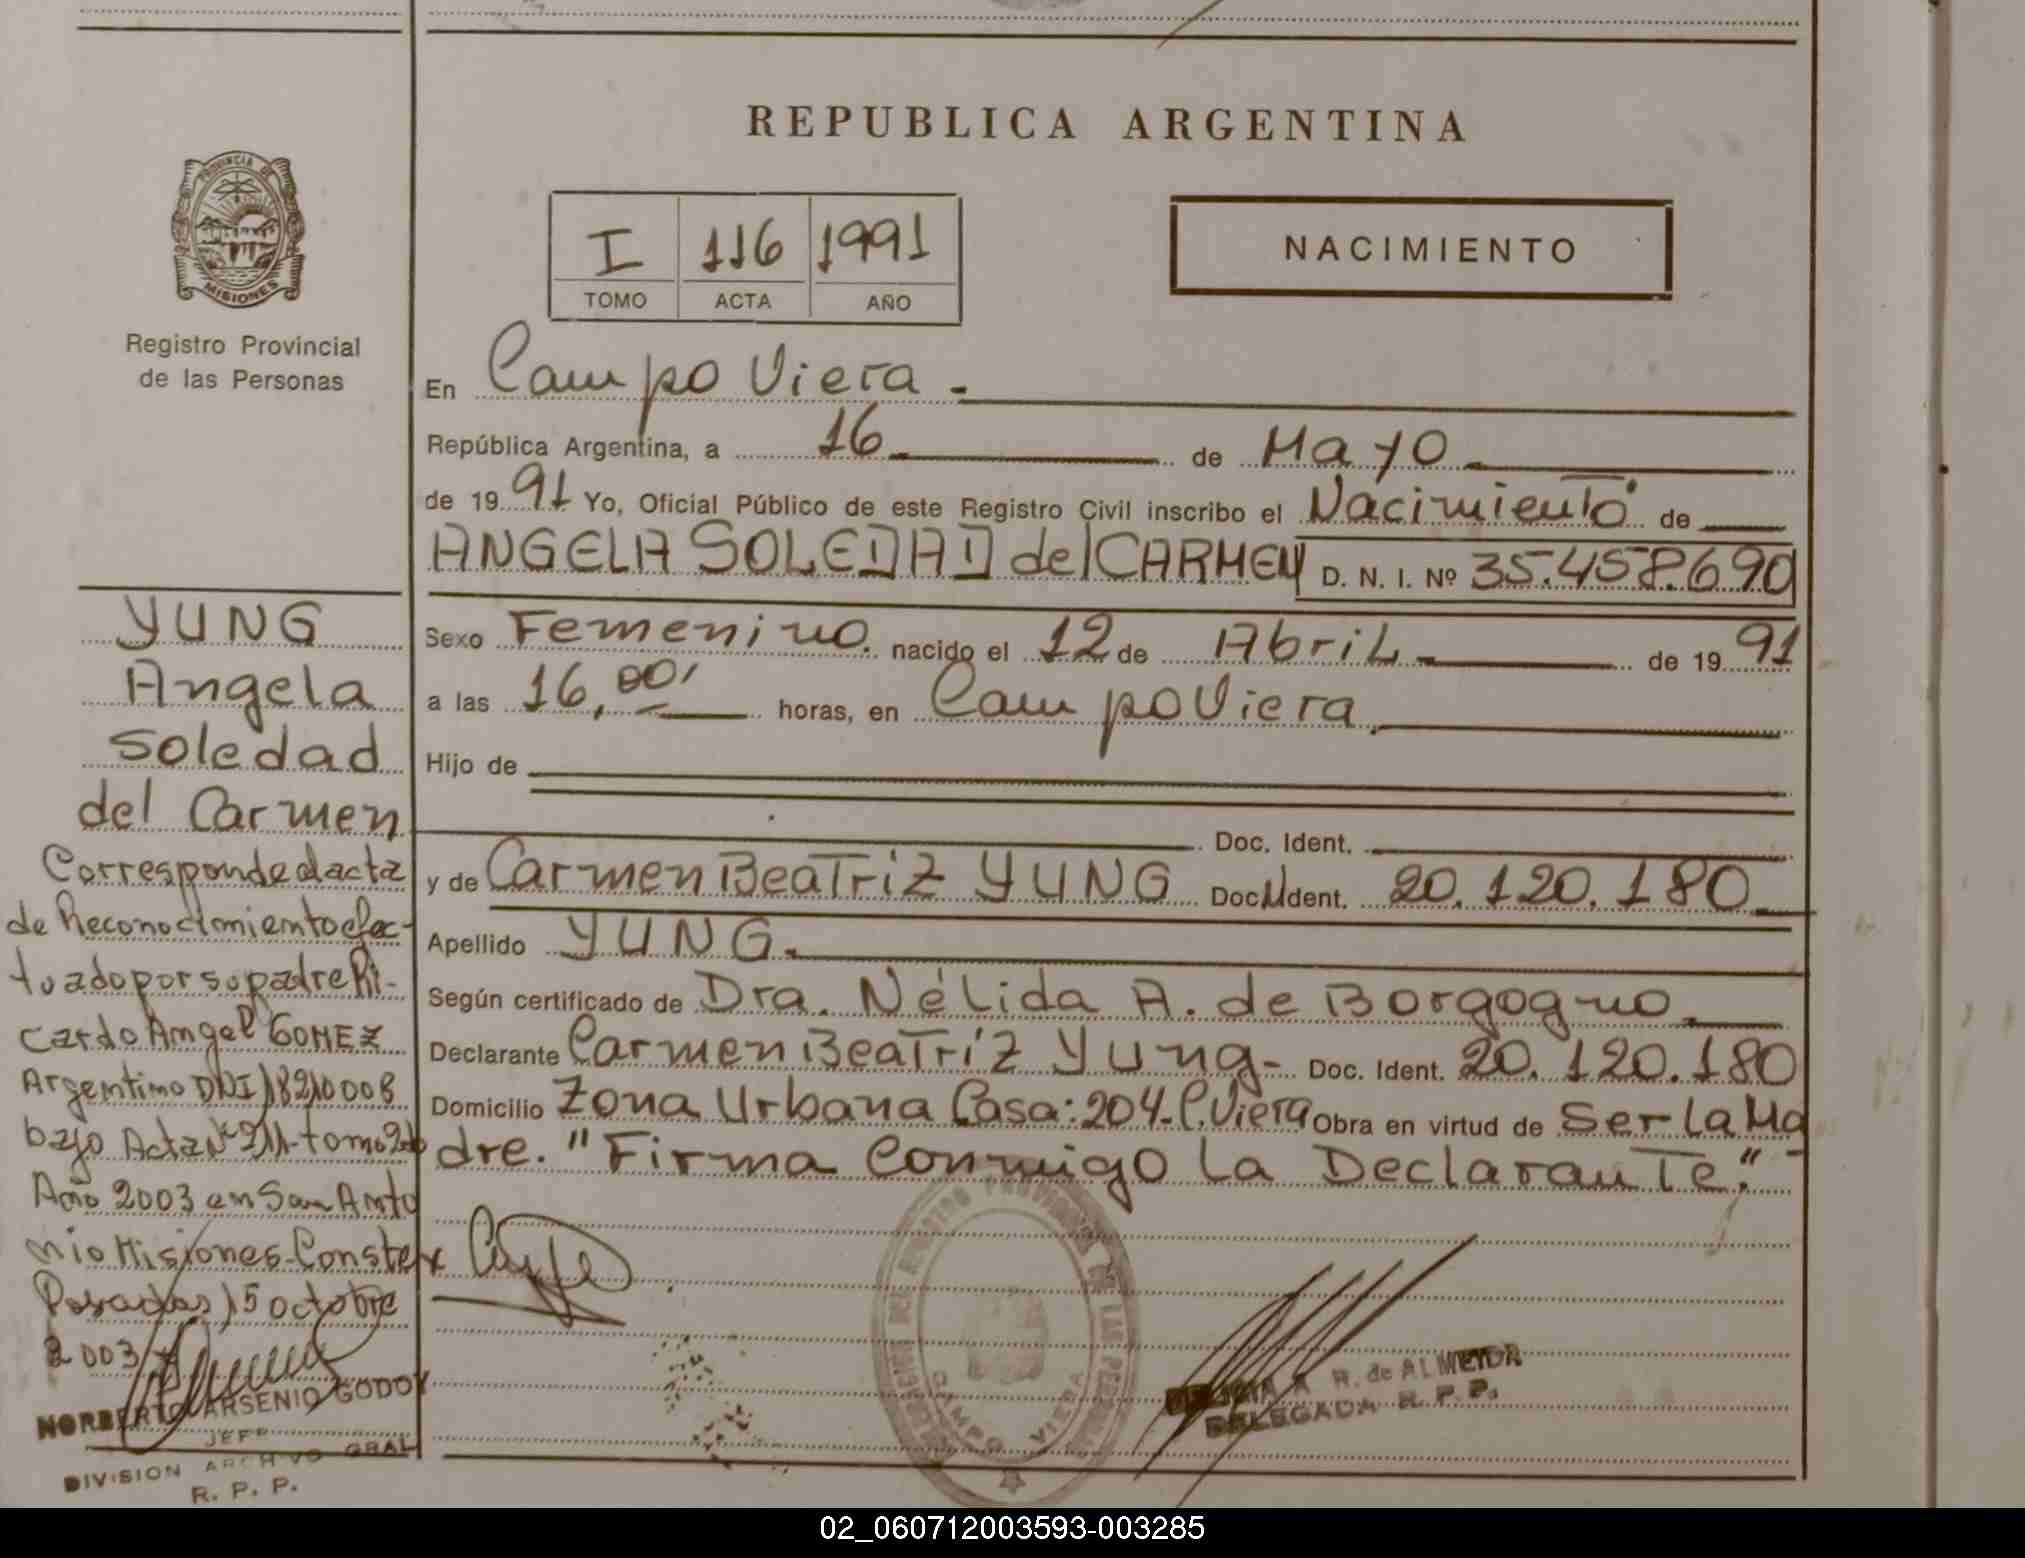 REPUBLICA ARGENTINA
PROVINCIA DE
MISIONES
Registro Provincial
de las Personas
I 116 1991
TOMO ACTA AÑO
NACIMIENTO
En Campo Viera.
República Argentina, a 16 de Mayo
de 1991 Yo, Oficial Público de este Registro Civil inscribo el Nacimiento de
ANGELA SOLEDAD del CARMEN D. N. I. Nº 35.458.690
Sexo Femenino. nacido el 12 de Abril de 1991
a las 16,00 horas, en Campo Viera
Hijo de
Doc. Ident.
y de Carmen Beatriz YUNG Doc. Ident. 20.120.180
Apellido YUNG.
Según certificado de Dra. Nélida A. de Borgogno
Declarante Carmen Beatríz Yung- Doc. Ident. 20.120.180
Domicilio Zona Urbana Casa: 204-C.Viera Obra en virtud de Ser la Ma
dre. "Firma conmigo la Declarante".-
YUNG
Angela
Soledad
del Carmen
Corresponde al acta
de Reconocimiento efec-
tuado por su padre Ri-
cardo Angel GOMEZ
Argentino DNI 18210008
bajo Acta Nº 211-tomo
Año 2003 en San Anto
nio Misiones-Conste
Posadas 15 octobre
2003
NORBERTO ARSENIO GODOY
JEFE
DIVISION ARCHIVO GRAL
R. P. P.
REGISTRO PROVINCIAL DE LAS PERSONAS
CAMPO VIERA
A R. de ALMEIDA
DELEGADA R. P. P.
02_060712003593-003285